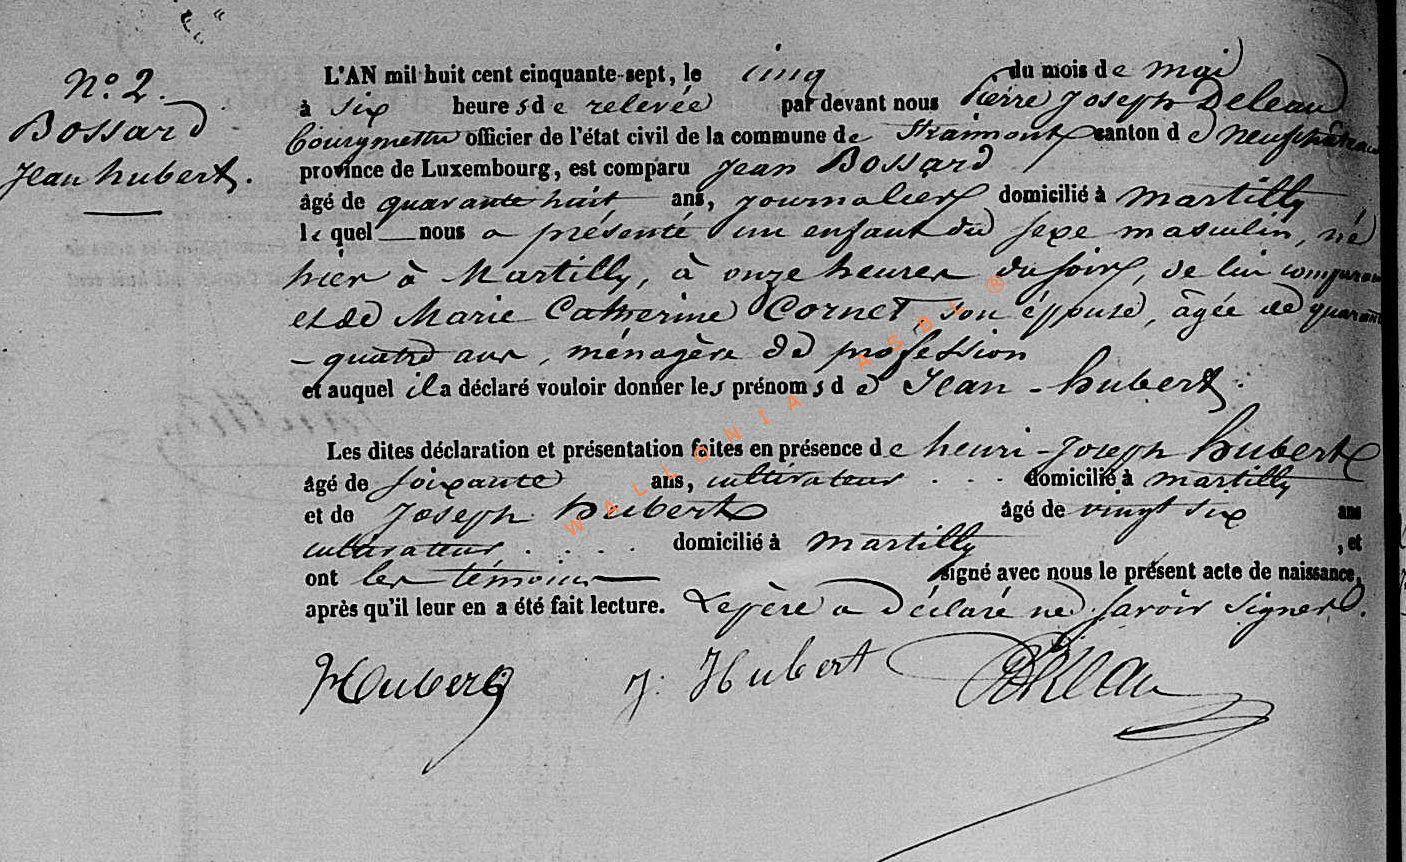 N.o 2.
Bossard
Jean hubert.
L'AN mil huit cent cinquante-sept, le cinq du mois de mai
à six heures de relevée par devant nous Pierre Joseph Deleau
bourgmestre officier de l'état civil de la commune de Straimont canton de Neufchâteau
province de Luxembourg, est comparu Jean Bossard
âgé de quarante huit ans, journalier domicilié à Martilly
le quel nous a présenté un enfant du sexe masculin, né
hier à Martilly, à onze heures du soir, de lui comparant
et de Marie Catherine Cornet son épouse, âgée de quarante
- quatre ans, ménagère de profession
et auquel il a déclaré vouloir donner les prénoms de Jean-hubert.
Les dites déclaration et présentation faites en présence de henri-Joseph hubert
âgé de soixante ans, cultivateur . . . domicilié à martilly
et de Joseph hubert âgé de vingt six ans
cultivateur . . . . domicilié à martilly , et
ont les témoins signé avec nous le présent acte de naissance,
après qu'il leur en a été fait lecture. Le père a déclaré ne savoir signer.
Hubert J. Hubert Deleau
WALLONIA ASBL ®